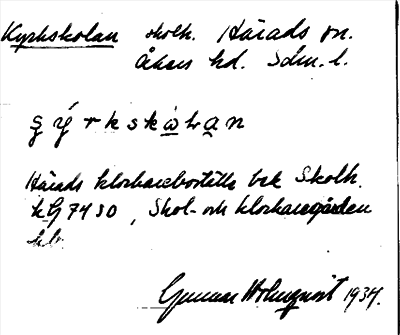 Kyrkskolan skolh. Härads sn.
Åkers hd. Sdm. l.
Härads klockareboställe bek Skolh.
kG 7430, Skol- och klockaregården
hb.
Gunnar Holmquist 1934.